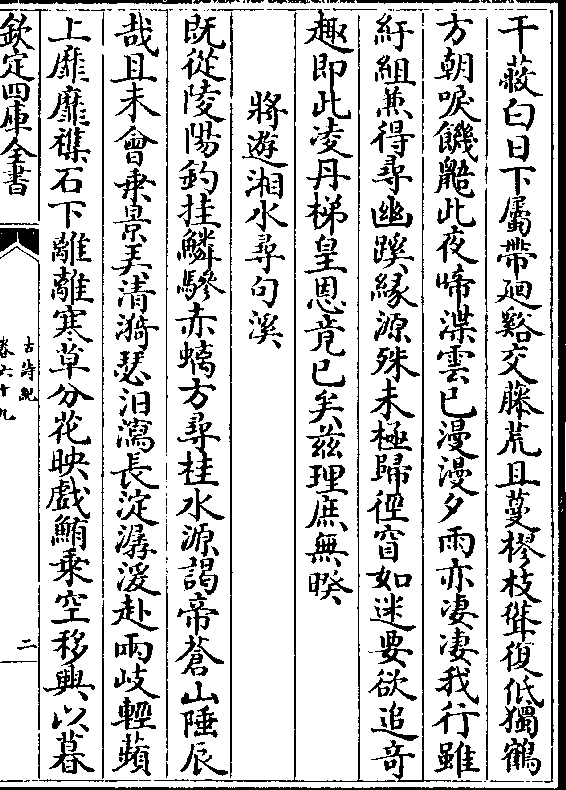 干蔽白日下屬帶廻谿交藤荒且蔓樛枝聳復低獨鶴
方朝唳饑鼯此夜啼渫雲已漫漫夕雨亦凄凄我行雖
紆組兼得尋幽蹊緣源殊未極歸徑窅如迷要欲追奇
趣即此凌丹梯皇恩竟已矣兹理庶無睽
將遊湘水尋句溪
既從陵陽釣挂鱗驂赤螭方尋桂水源謁帝蒼山陲辰
哉且未會乗景弄清漪瑟汨瀉長淀潺湲赴兩岐輕蘋
上靡靡襍石下離離寒草分花映戲鮪乘空移興以暮
欽定四庫全書
古詩紀
卷六十九
二